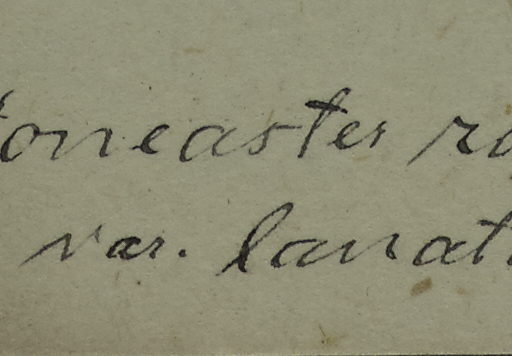 oneaster ro
var. lanat